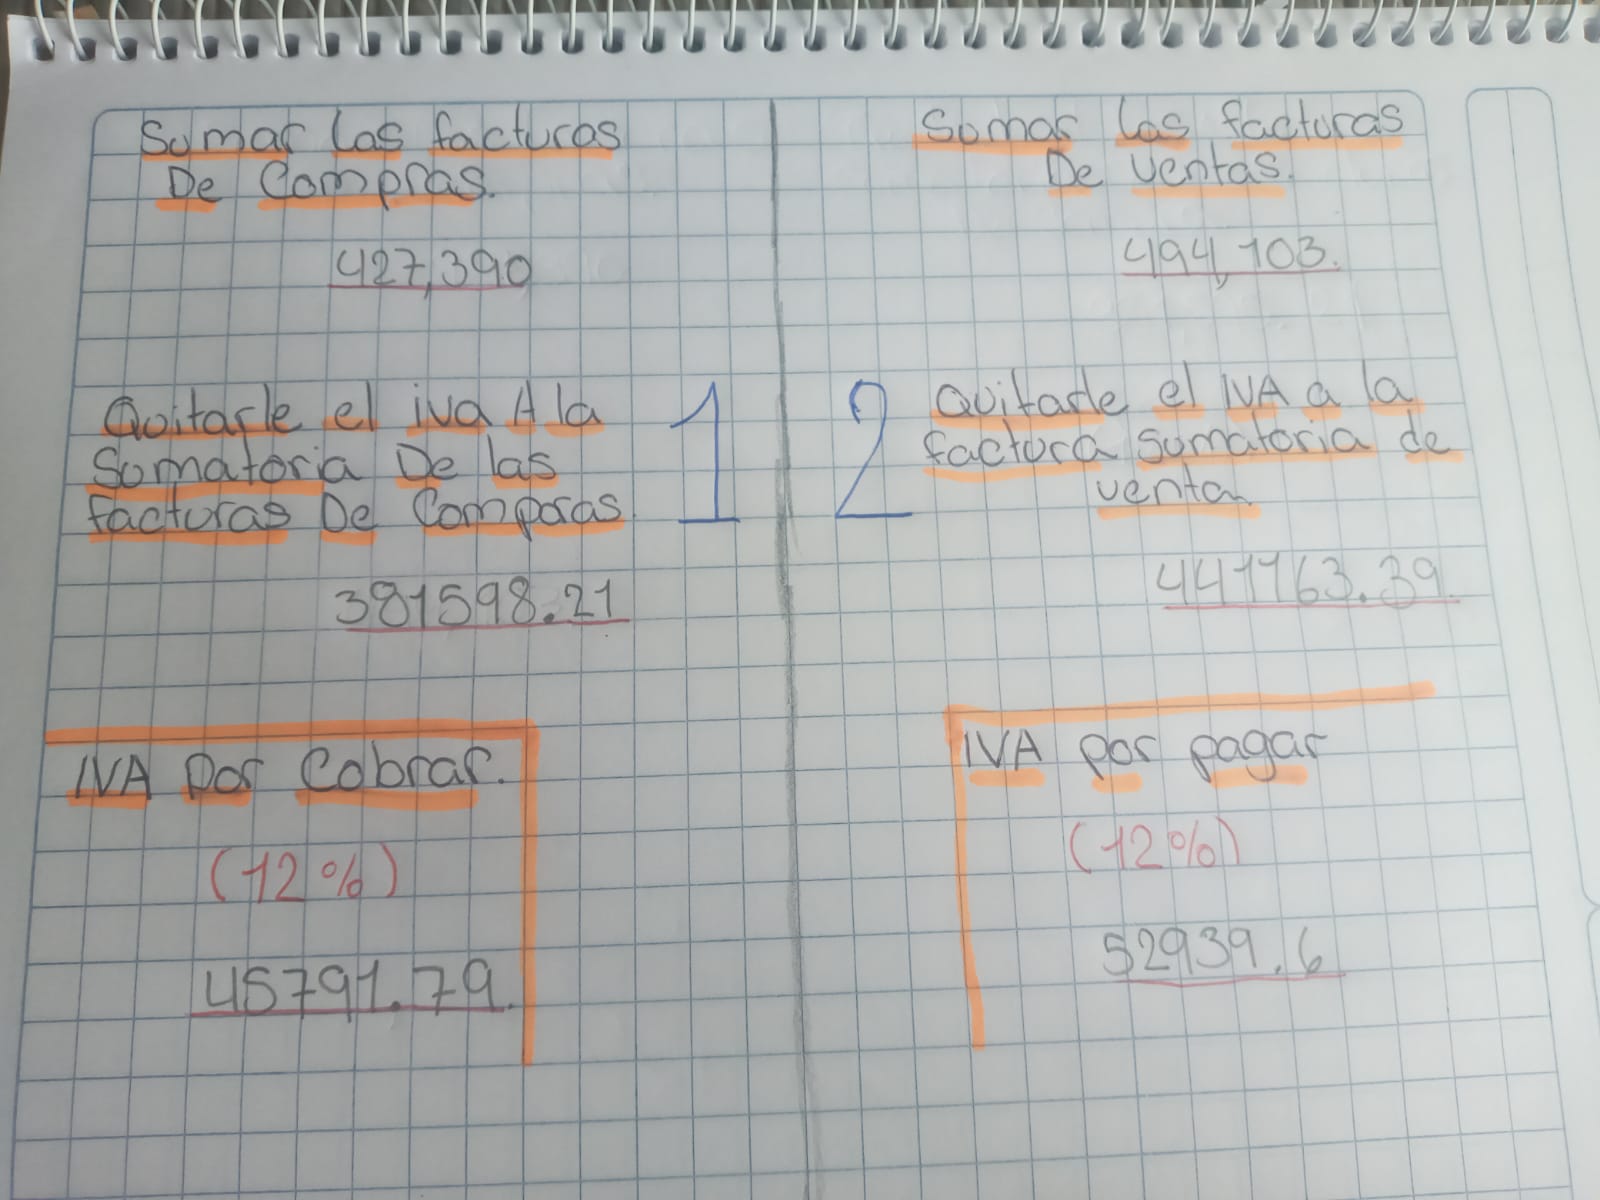 Sumar las facturas
De Compras.
427,390
Quitarle el iva A la
Somatoria De las
facturas De Comporas
381598.21
1
IVA por Cobrar.
(12%)
45791.79.
Sumar las facturas
De ventas.
494,103.
2
Quitarle el IVA a la
factura sumatoria de
venta.
441163.39.
IVA por pagar
(12%)
52939.6